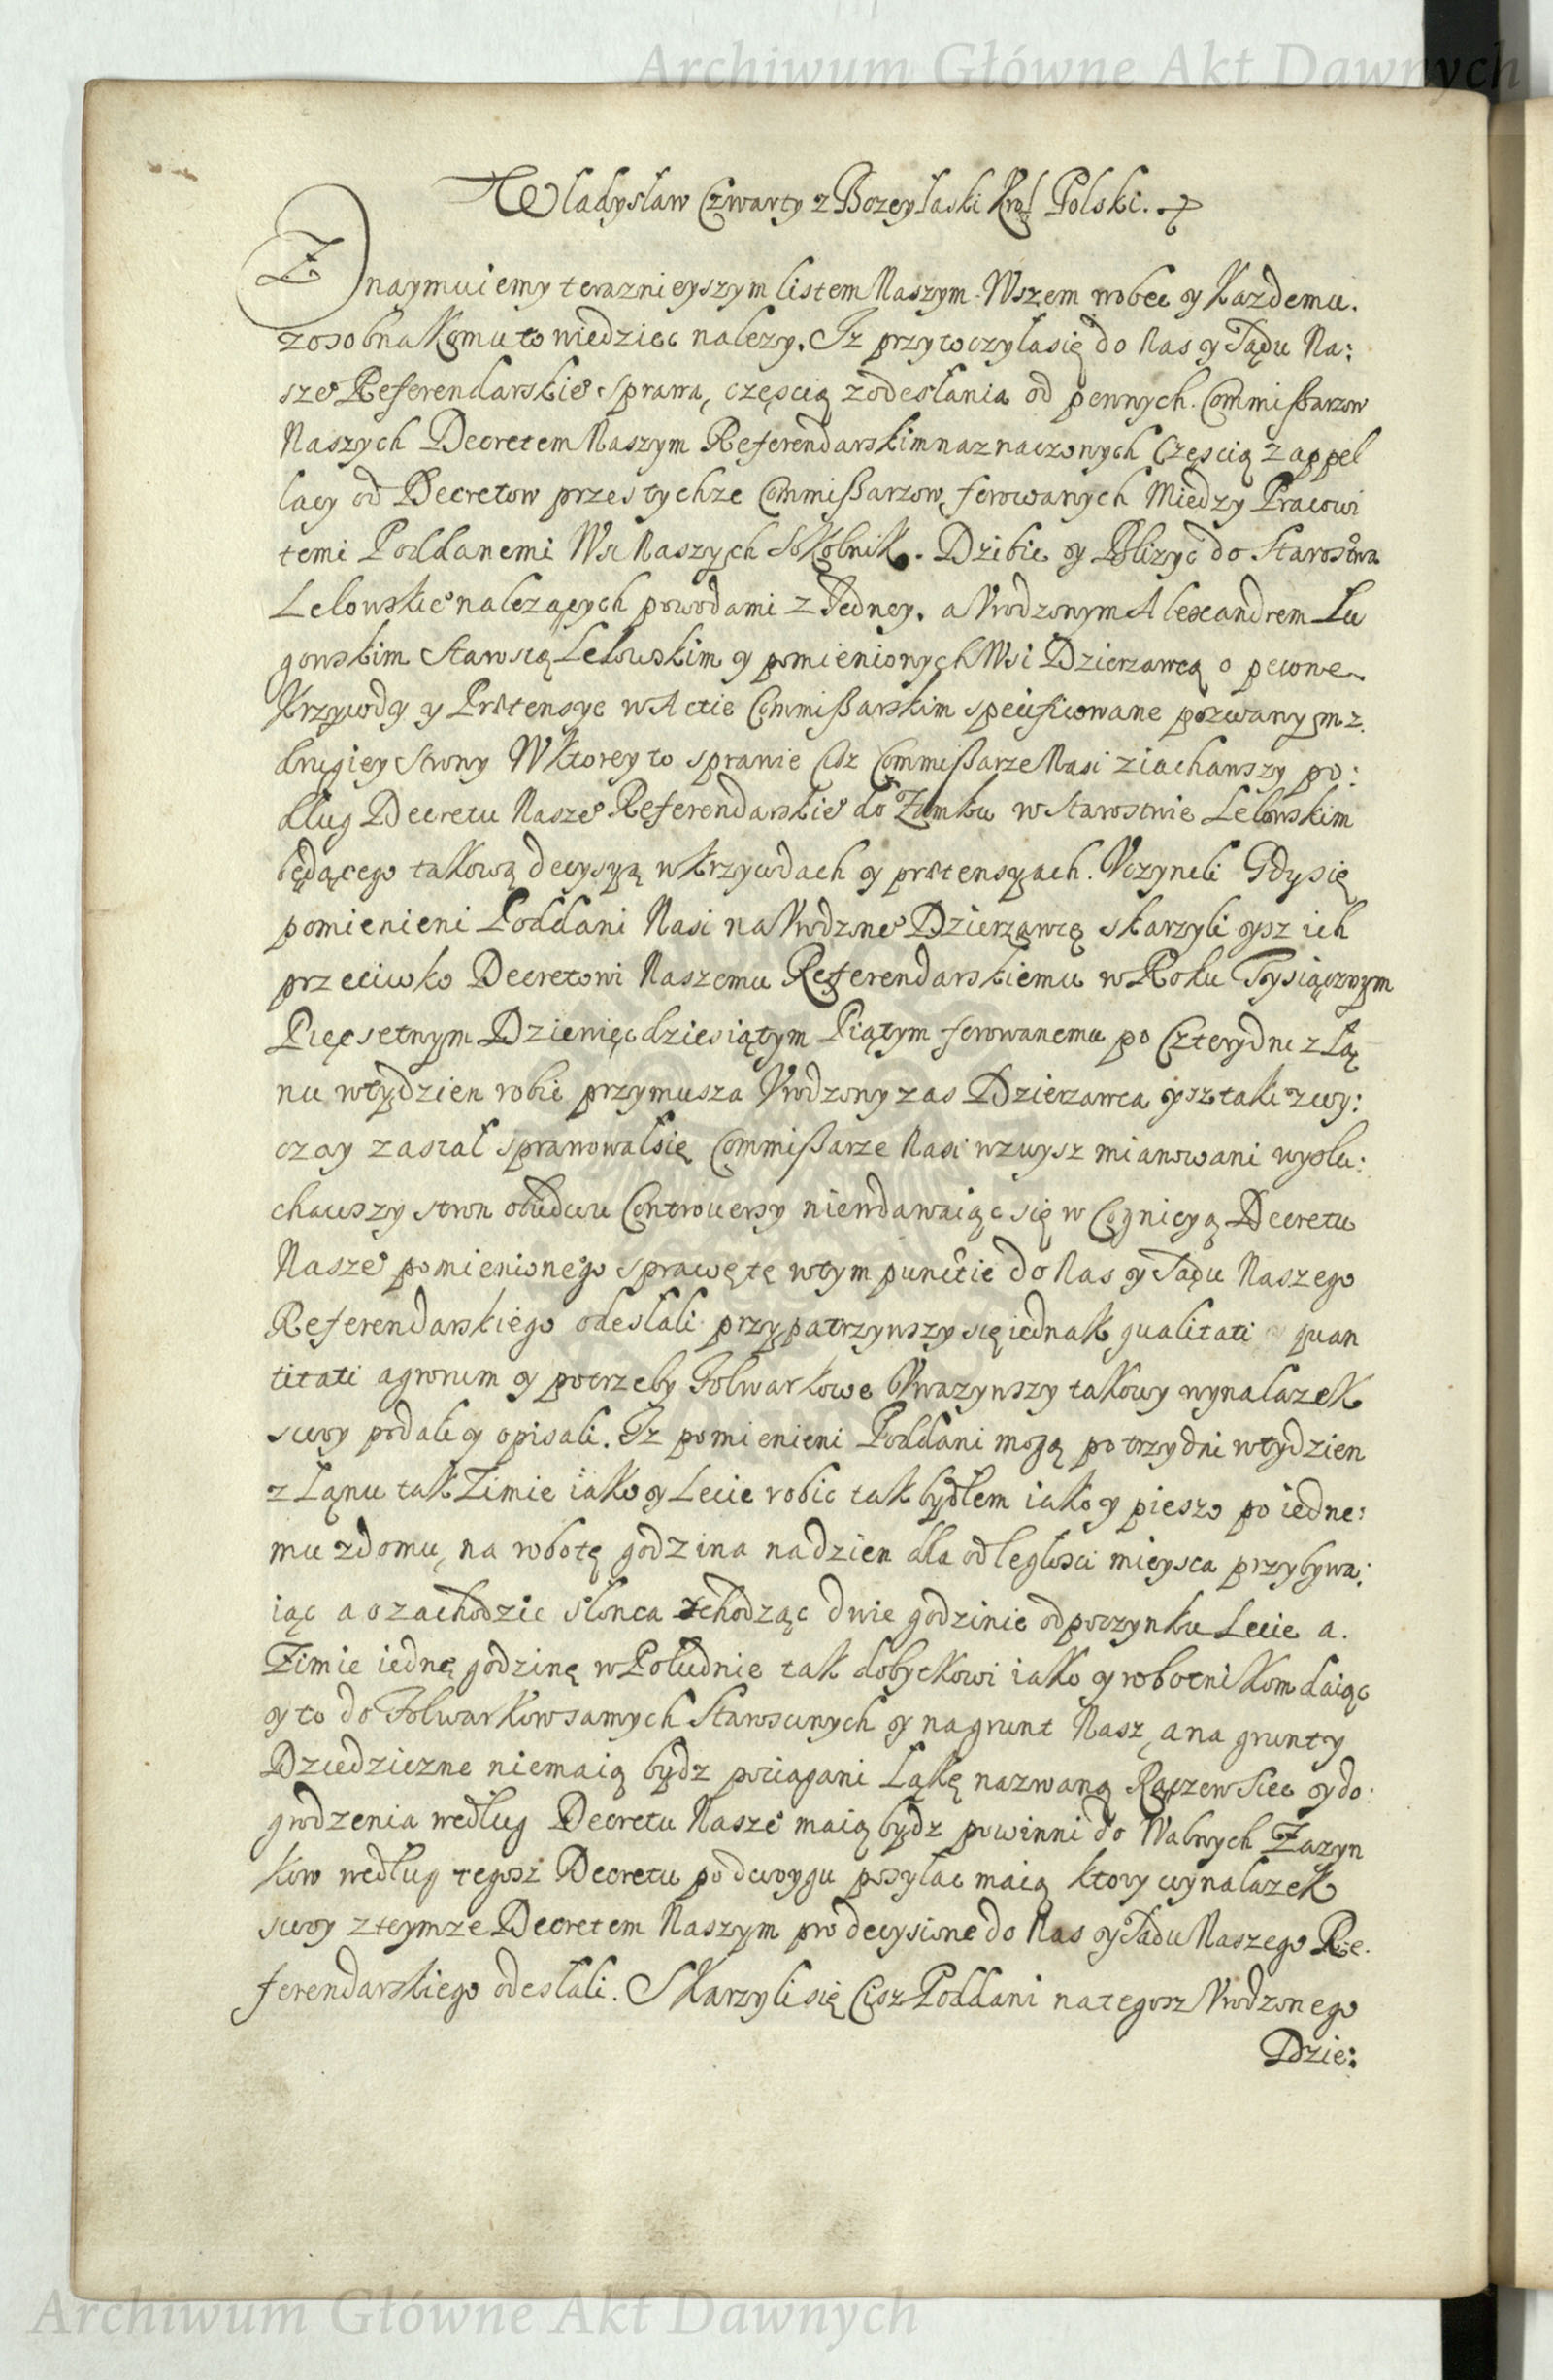 Archiwum Główne Akt Dawnych
Władysław Czwarty z Bozey łaski Krol Polski.
Znaymuiemy teraznieyszym listem Naszym Wszem wobec y Kazdemu.
zosobna Komu to wiedziec nalezy. Iz przytoczyła się do Nas y Sądu Na:
sze° Referendarskie° sprawa, częscią z odesłania od pewnych Commissarzow
Naszych Decretem Naszym Referendarskim naznaczonych Częscią z appel
lacy od Decretow przes tychze Commissarzow ferowanych Między Pracowi
temi Poddanemi Wsi Naszych Sokolnik. Dzibic y Bliżyc do Starostwa
Lelowskie° nalezących powodami z Jedney. a Urodzonym Alexandrem Łu
gowskim Starostą Lelowskim y pomienionych Wsi Dzierzawcą o pewne
Krzywdy y Prætensye w Actie Commissarskim specificowane pozwanym z
drugiey strony W ktorey to sprawie Cisz Commissarze Nasi ziachawszy po:
dług Decretu Nasze° Referendarskie° do Zamku w Starostwie Lelowskim
będącego takową decysyą w krzywdach y prætensyach. Uczyneli Gdy się
pomienieni Poddani Nasi na Urodzone° Dzierzawcę skarzyli ysz ich
przeciwko Decretowi Naszemu Referendarskiemu w Roku Tysiącznym
Pięcsetnym Dziewięcdziesiątym Piątym ferowanemu po Cztery dni z Łą
nu w tydzien robic przymusza Urodzony zas Dzierzawca ysz taki zwy:
czay zastał sprawował się Commissarze Nasi wzwysz mianowani wysłu:
chawszy stron obudwu Controversy niewdawaiąc się w Cognicyą Decretu
Nasze° pomienionego sprawę tę w tym punctie do Nas y Sądu Naszego
Referendarskiego odesłali przypatrzywszy się iednak qualitati y quan
titati agrorum y potrzeby Folwarkowe Uwazywszy takowy wynalazek
swoy podali y opisali. Iz pomienieni Poddani maią po trzy dni w tydzien
z Łąnu tak Zimie iako y Lecie robic tak bydłem iako y pieszo po iedne:
mu z domu, na robotę godzina na dzien dla odległosci mieysca przybywa:
iąc a o zachodzie słonca schodząc dwie godzinie odpoczynku Lecie a.
Zimie iednę godzinę w Południe tak dobytkowi iako y robotnikom daiąc
y to do Folwarkow samych Staroscinych y na grunt Nasz, a na grunty
Dziedziczne niemaią bydz pociągani Łąkę nazwaną y do:
grodzenia według Decretu Nasze° maią bydz powinni do Walnych Zazyn
kow według tegosz Decretu po dwoygu posyłac maią ktory wynalazek
swoy z teymze Decretem Naszym pro decysione do Nas y Sądu Naszego Re.
ferendarskiego odesłali. Skarzyli się Cisz Poddani na tegosz Urodzonego
Dzie:
Archiwum Główne Akt Dawnych